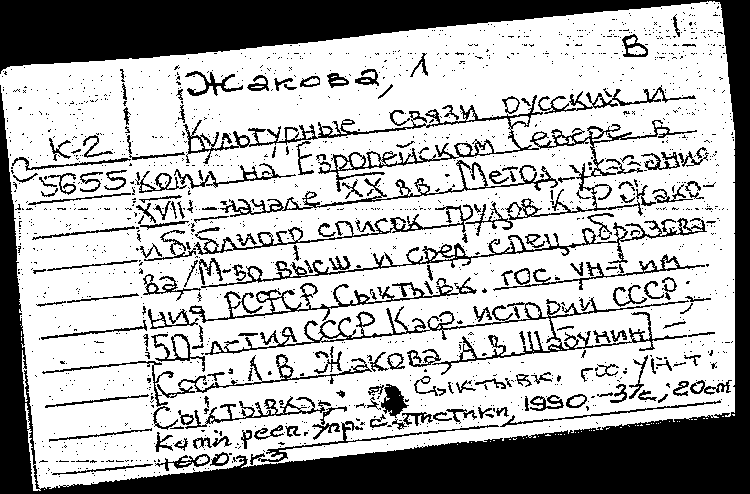 В 1.
Жакова, Л
К-2 Культурные связи русских и
5655 коми на Европейском Севере в
XVII-начале XX вв.: Метод. указания
и библиогр список трудов К.Ф Жако-
ва/М-во высш. и сред. спец. образова-
ния РСФСР, Сыктывк. гос. ун-т им
50-летия СССР. Каф. истории СССР;
[Сост: Л.В. Жакова, А.В. Шабунин] -
Сыктывкар: Сыктывк. гос. ун-т:
Коми респ. упр. статистики, 1990.-37с.; 20см
1000экз